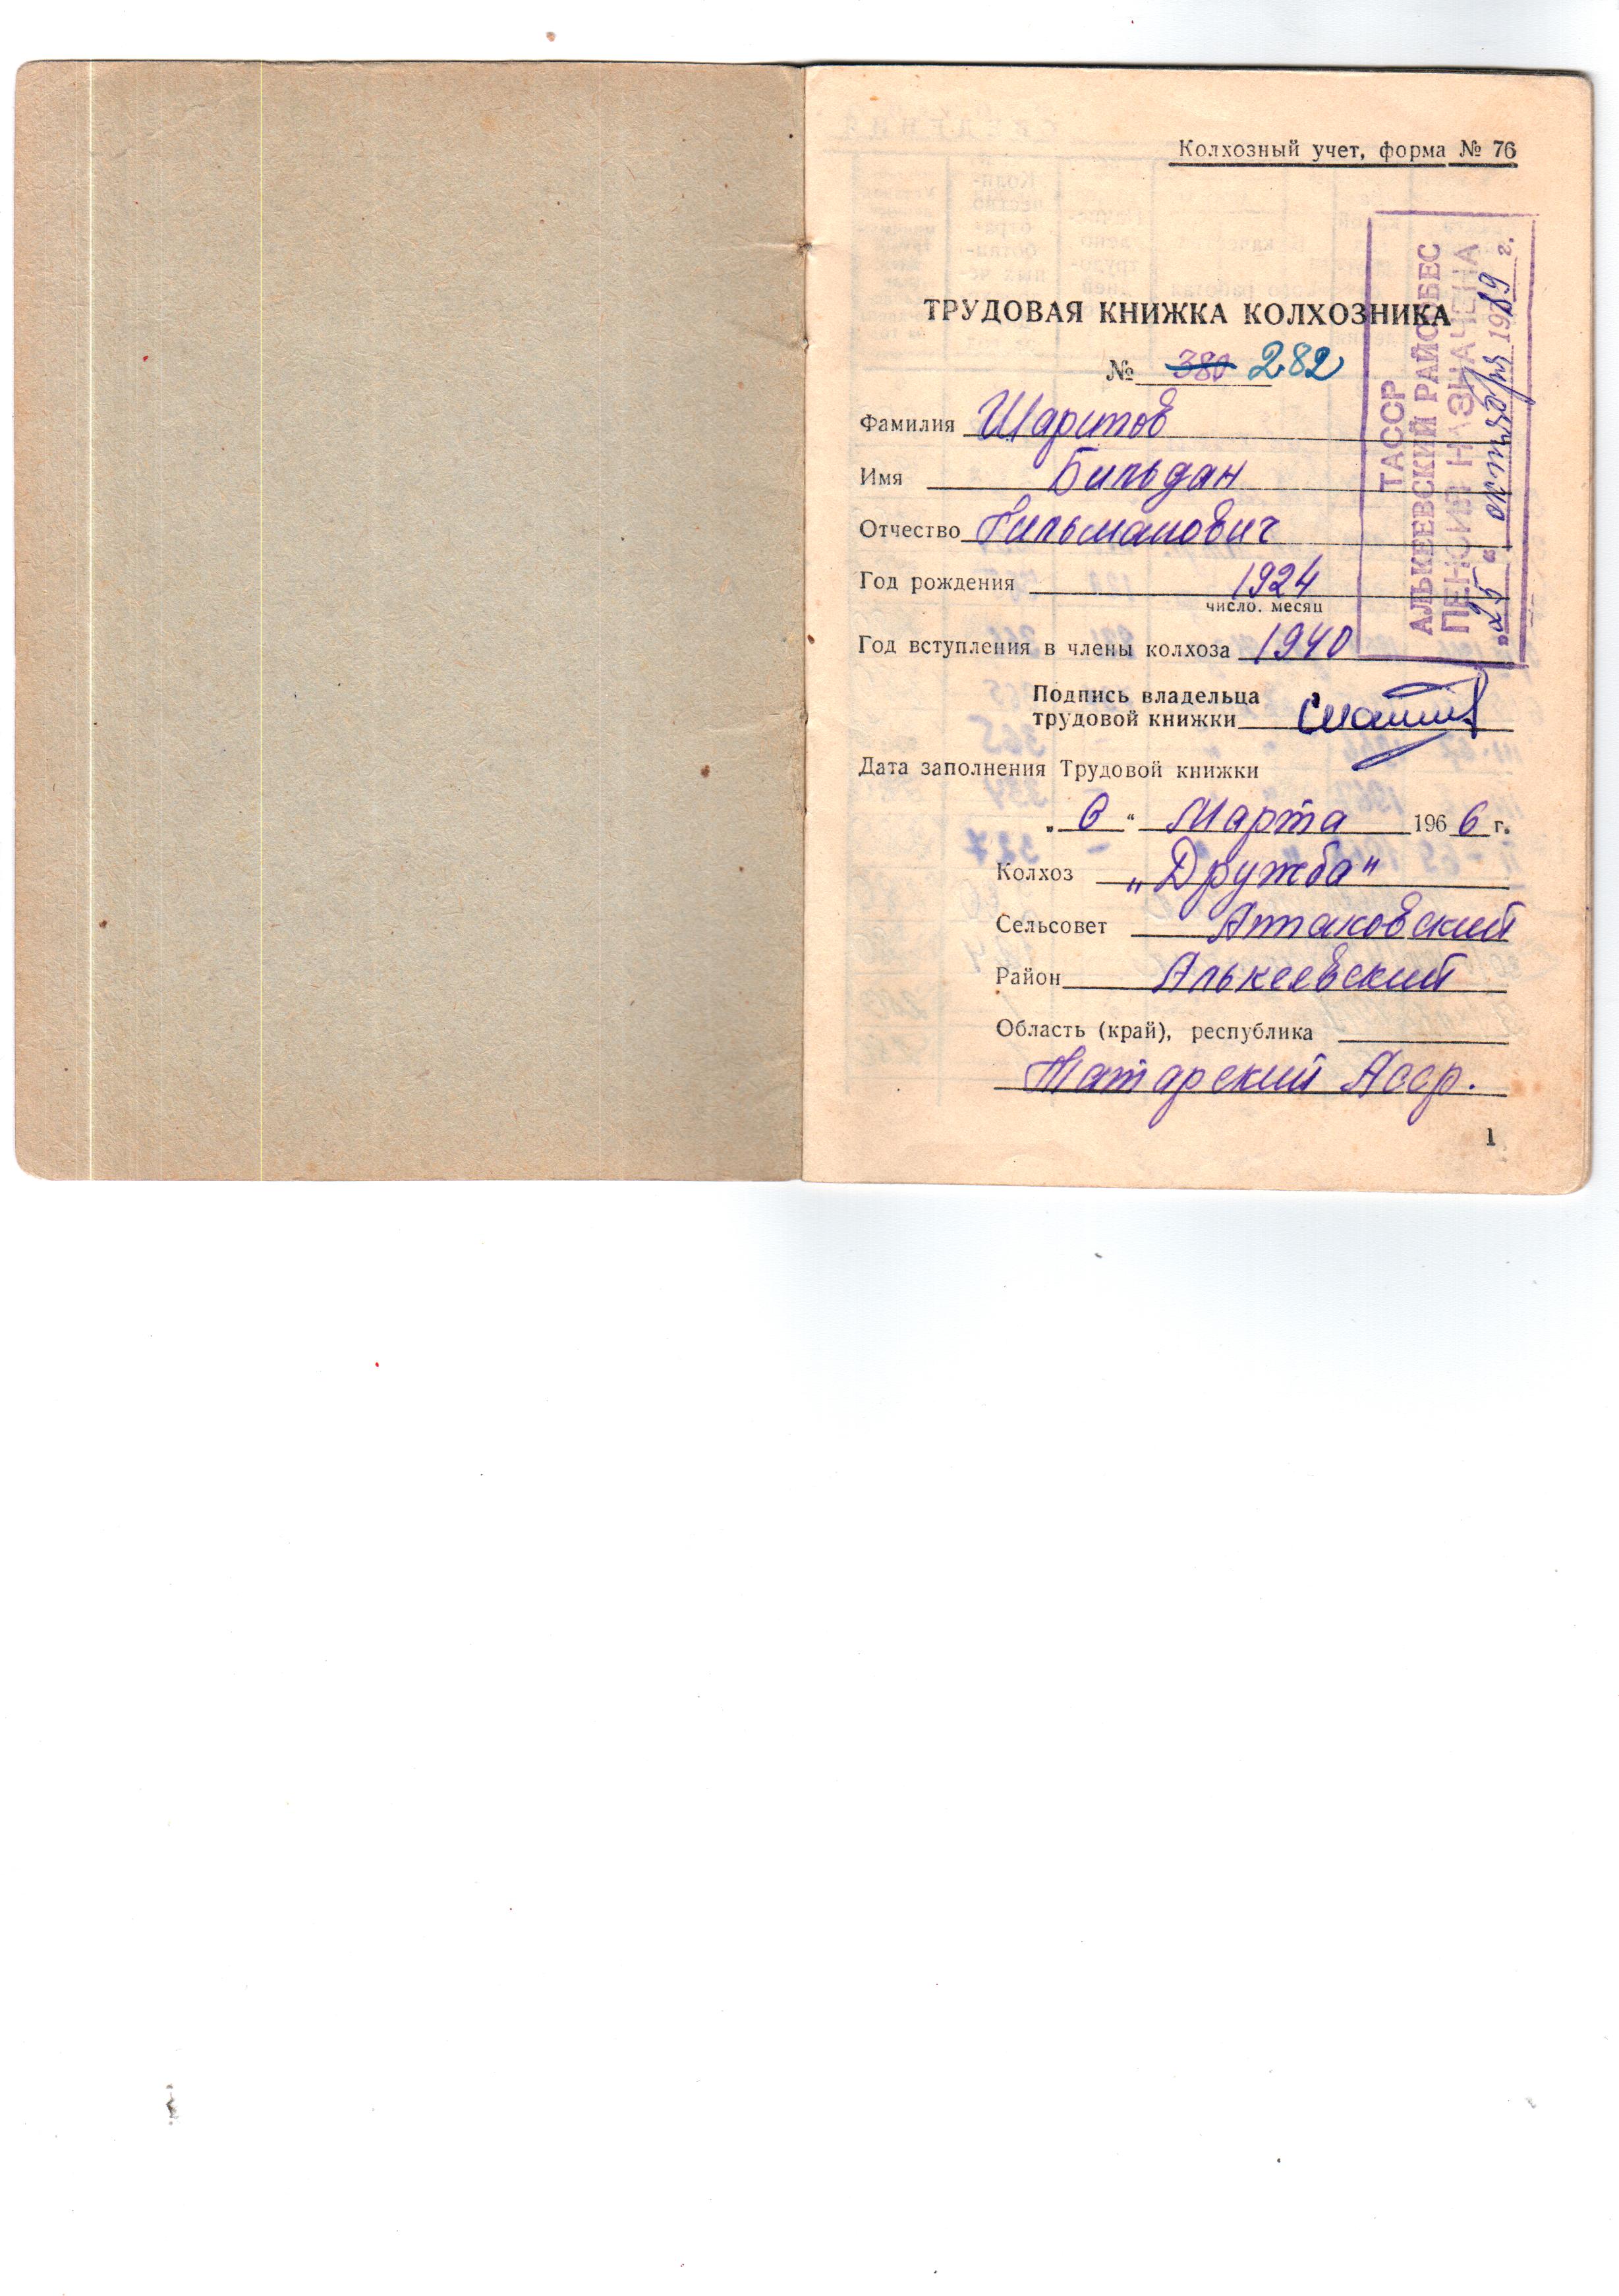 Колхозный учет, форма № 76
ТРУДОВАЯ КНИЖКА КОЛХОЗНИКА
№ 380 282
Фамилия Шарипов
Имя Бильдан
Отчество Гильманович
Год рождения 1924
число. месяц
Год вступления в члены колхоза 1940
Подпись владельца
трудовой книжки
Дата заполнения Трудовой книжки
„ 6 “ Марта 1966 г.
Колхоз „Дружба"
Сельсовет Аппаковский
Район Алькеевский
Область (край), республика
Татарский Асср.
1
ТАССР
АЛЬКЕЕВСКИЙ РАЙСОБЕС
ПЕНСИЯ НАЗНАЧЕНА
„25“ октября 1989 г.